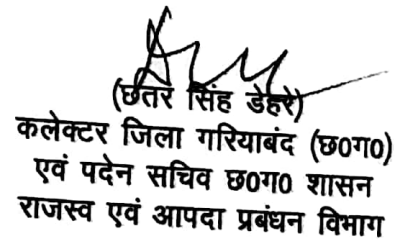 (छतर सिंह डेहरे)
कलेक्टर जिला गरियाबंद (छ0ग0)
एवं पदेन सचिव छ0ग0 शासन
राजस्व एवं आपदा प्रबंधन विभाग